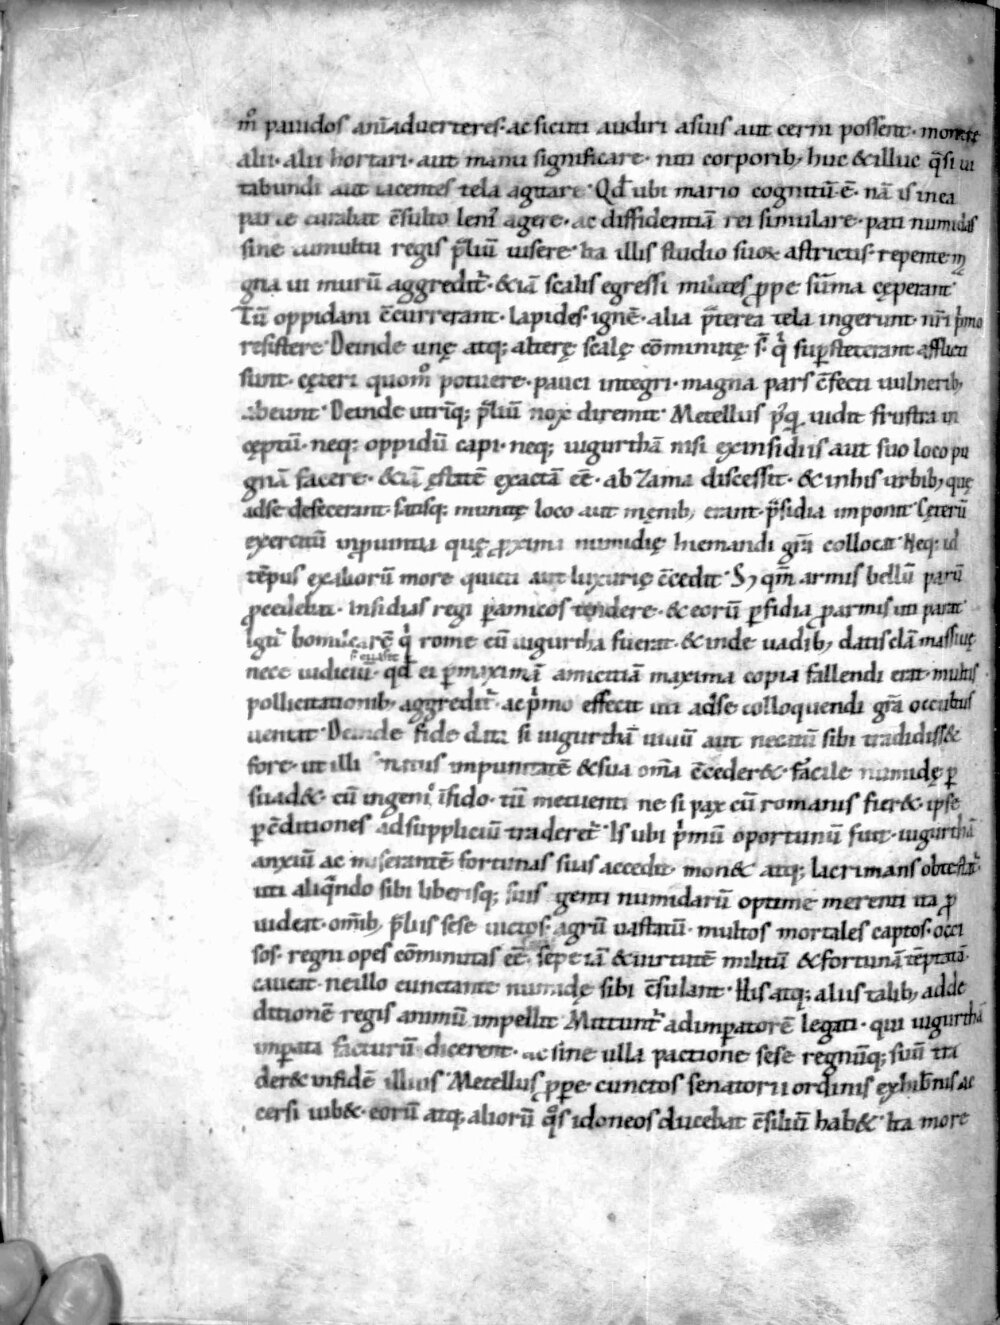 m̊ pauidos aniāduerteres· ac sicuti audiri asuis aut cerni possent· monere
alii· alii hortari· aut manu significare· niti corporib; huc &illuc q̄si ui
tabundi aut iacentes tela agitare· Qđ ubi mario cognitū ē· nā is inea
parte curabat c̄sulto leni᷒ agere· ac diffidentiā rei simulare· pati numidas
sine tumultu regis p̄liū uisere· Ita illis studio suoꝝ astrictis· repente m
gna ui murū aggredit᷒· &iā scalis egressi milites ꝓpe sūma cęperant·
Tū oppidani c̄currerant· lapides· ignē· alia p̄terea tela ingerunt· nr̄i p̍mo
resistere· Deinde unę atq; alterę scalę cōminutę s̄· q̍ sup̱steterant afflicti
sunt· cęteri quom̊ potuere· pauci integri· magna pars c̄fecti uulnerib;
abeunt· Deinde utriq; p̄liū nox diremit· Metellus p᷒q uidit frustra in
cęptū· neq; oppidū capi· neq; iugurthā nisi exinsidiis aut suo loco pu
gnā facere· &iā ęstatē exactā ēē· ab Zama discessit· & inhis urbib; quę
adse defecerant· satisq; munitę loco aut męnib; erant· p̄sidia imponit· Cęterū
exercitū inꝓuintia quę ꝓxima numidię hiemandi gr̄a collocat· Neq; id
tēpus exaliorū more quieti aut luxurię c̄cedit· S; qm̄ armis bellū parū
ꝓcedebat· insidias regi p̱amicos tendere· & eorū p̱fidia ꝓarmis uti parat·
Igit᷒ bomilcarē q̍ rome cū iugurtha fuerat· & inde uadib; datis clā massiuę
nece iudiciū· qđ ei p̱maximā amicitiā maxima copia fallendi erat· multis
pollicitationib; aggredit᷒· ac p̍mo effecit uti adse colloquendi gr̄a occultus
ueniat· Deinde fide data si iugurthā uiuū aut necatū sibi tradidiss&
fore· ut illi natus impunitatē &sua om̄a c̄ceder&· facile numidę p̱
suad&· cū ingeni᷒ īfido· tū metuenti ne si pax cū romanis fier& ipse
p̱ c̄ditiones adsuppliciū traderet᷒· Is ubi p̍mū oportunū fuit· iugurthā
anxiū ac miserantē fortunas suas accedit· mon& atq; lacrimans obtestat᷒
uti aliqn̄do sibi liberisq; suis genti numidarū optime merenti ita ꝓ
uideat· om̄ib; p̄liis sese uictos· agrū uastatū· multos mortales captos· occi
sos· regni opes cōminutas ēē· sępe iā & uirtutē militū &fortunā tēptatā·
caueat· neillo cunctante numidę sibi c̄sulant· His atq; aliis talib; adde
ditionē regis animū impellit· Mittunt᷒ adimp̱atorē legati· qui iugurthā
imp̱ata facturū dicerent· ac sine ulla pactione sese regnūq; suū tra
der& infidē illius· Metellus ꝓpe· cunctos senatorii ordinis exhib̄nis ac
cersi iub&· eorū atq; aliorū q̊s idoneos ducebat c̄siliū hab&· Ita more